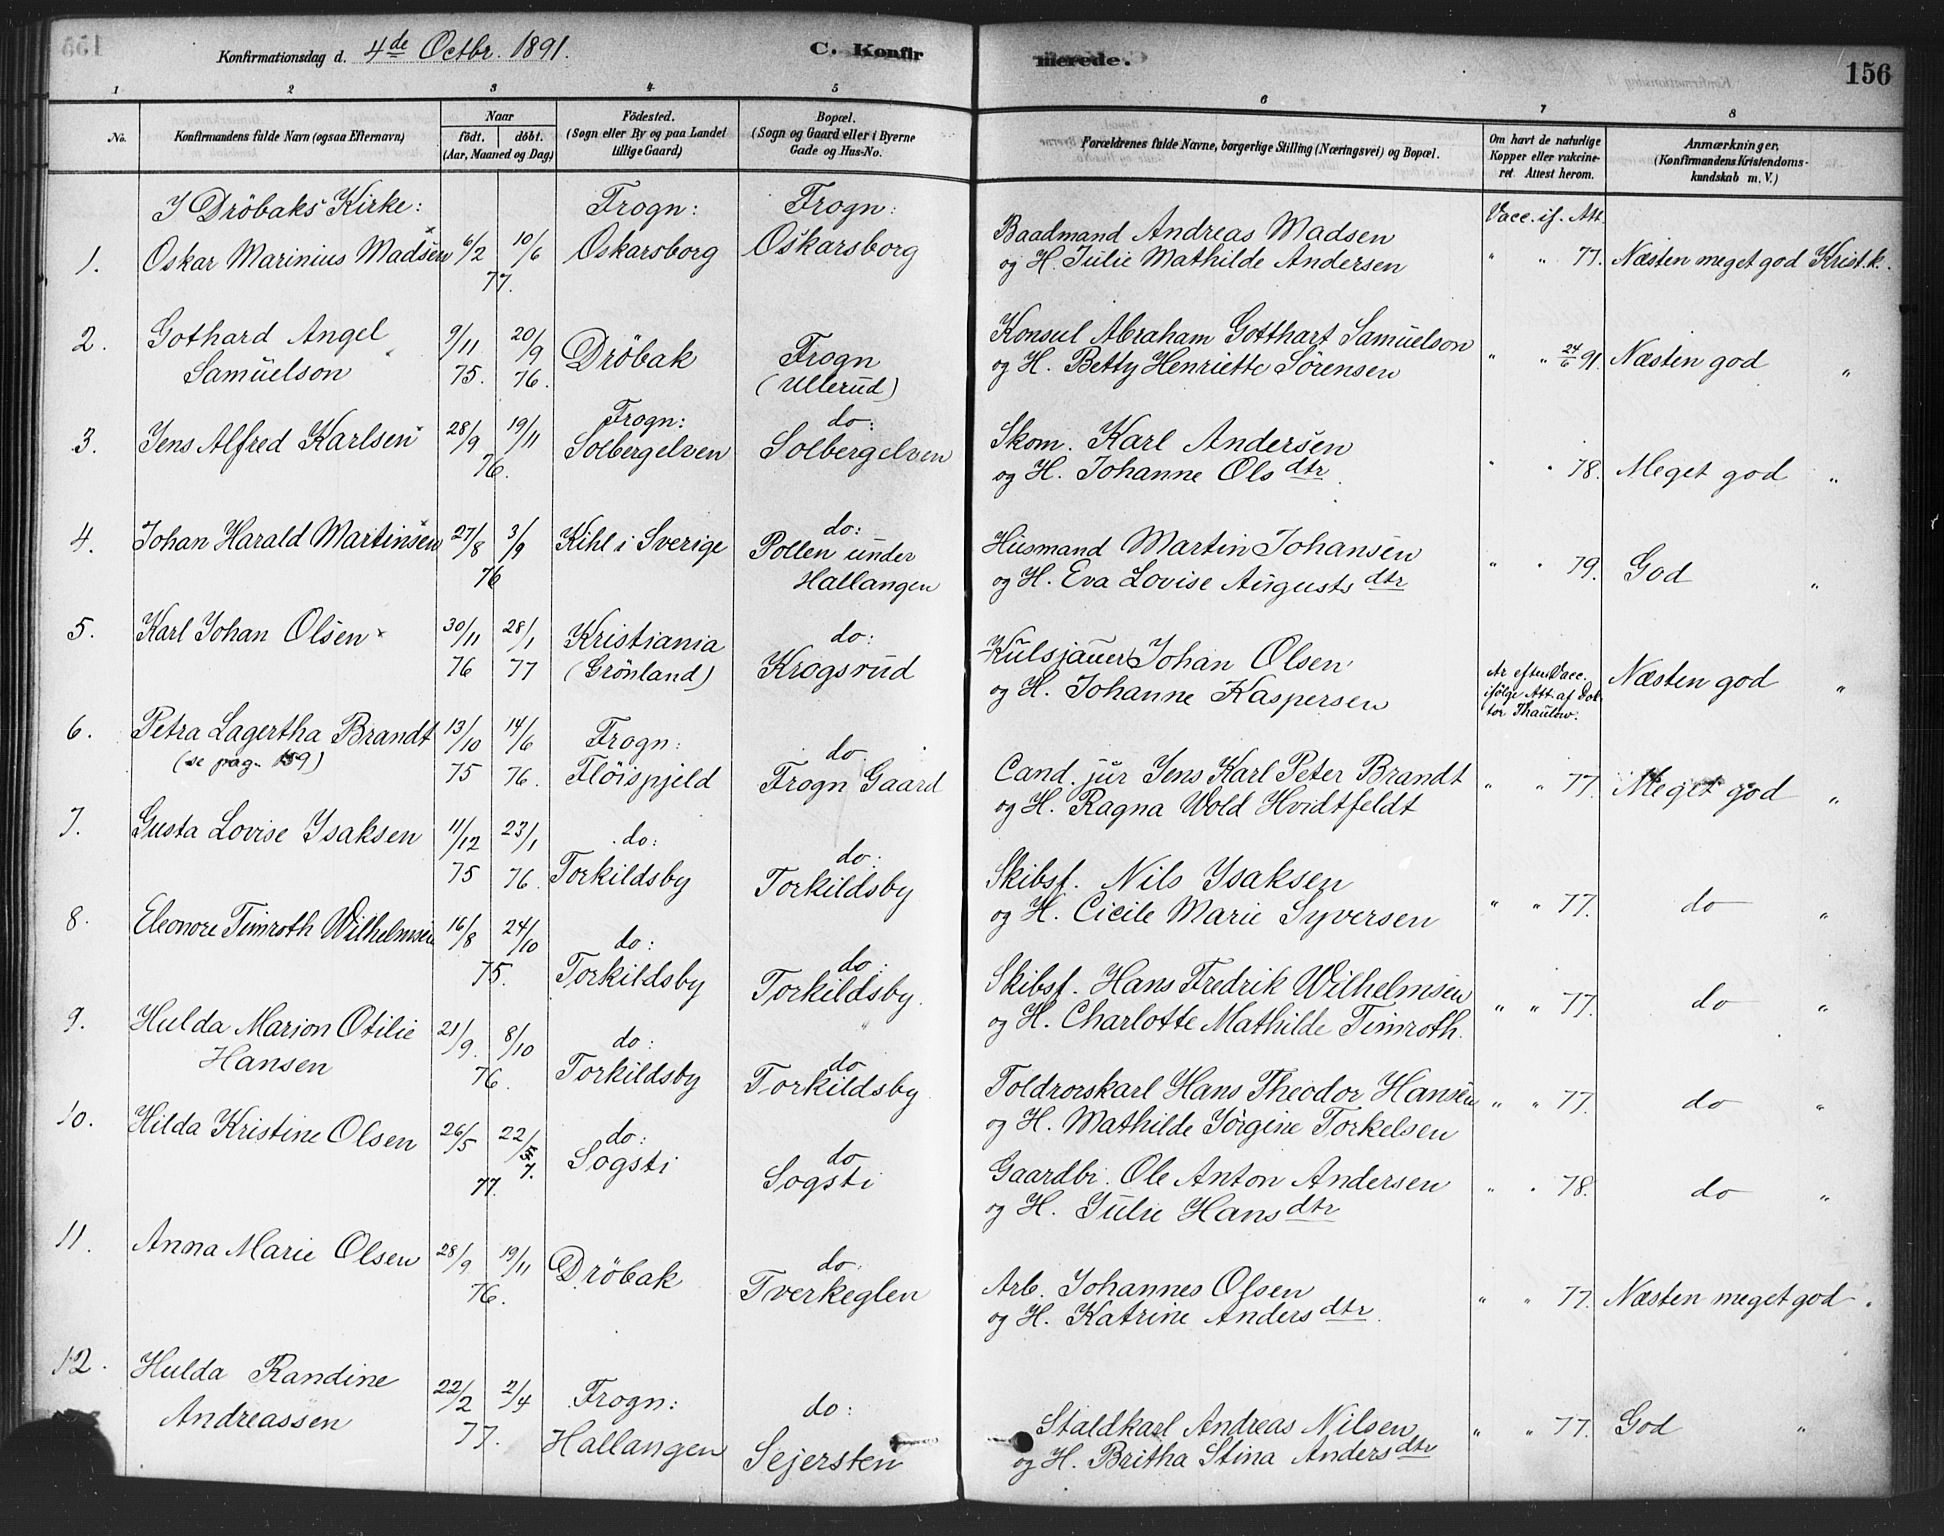 Konfirmationsdag d. 4de Octbr. 1891.
C. Konfirmerede.
156
1 2 3 4 5 6 7 8
No.
Konfirmandens fulde Navn (ogsaa Efternavn)
Naar
födt. döbt.
(Aar, Maaned og Dag)
Födested.
(Sogn eller By og paa Landet tillige Gaard)
Bopæl.
(Sogn og Gaard eller i Byerne Gade og Hus-No.
Forældrenes fulde Navne, borgerlige Stilling (Næringsvei) og Bopæl.
Om havt de naturlige Kopper eller vakcineret. Attest herom.
Anmærkninger,
(Konfirmandens Kristendomskundskab m. V.)
I Dröbaks Kirke: Frogn: Frogn: Vacc. if. Att.
1. Oskar Marinius Madsen 6/2 10/6 77. Oskarsborg Oskarsborg
Baadmand Andreas Madsen
og H. Julie Mathilde Andersen " " 77. Næsten meget god Krist.k.
2. Gothard Angel
Samuelson 9/11 75. 20/9 76. Dröbak Frogn
(Ullerud)
Konsul Abraham Gotthart Samuelson
og H. Betty Henriette Sörensen " " 24/6 91. Næsten god "
3. Jens Alfred Karlsen 28/9 19/11 76. Frogn:
Solbergelven do:
Solbergelven
Skom. Karl Andersen
og H. Johanne Olsdtr. " " 78. Meget god "
4. Johan Harald Martinsen 27/8 3/9 76 Kihl i Sverige do:
Pollen under
Hallangen
Husmand Martin Johansen
og H. Eva Lovise Augustsdtr " " 79. God "
5. Karl Johan Olsen 30/11 76 28/1 77 Kristiania
(Grönland) do:
Krogsrud
Kulsjauer Johan Olsen
og H. Johanne Kaspersen
Ar efter Vacc.
ifölge Att. af Doktor Thaulow. Næsten god "
6. Petra Lagertha Brandt
(se pag. 159) 13/10 75 14/6 76. Frogn:
Flöispjeld do
Frogn Gaard
Cand. jur Jens Karl Peter Brandt
og H. Ragna Wold Hvidtfeldt " " 77. Meget god "
7. Gusta Lovise Isaksen 11/12 75 23/1 76. do:
Torkildsby do:
Torkildsby
Skibsf. Nils Isaksen
og H. Cicile Marie Syversen " " 77. do "
8. Eleonore Timroth Wilhelmsen 16/8 24/10 75. do:
Torkildsby do:
Torkildsby.
Skibsf. Hans Fredrik Wilhelmsen
og H. Charlotte Mathilde Timroth. " " 77. do "
9. Hulda Marion Otilie
Hansen 21/9. 8/10 76. do:
Torkildsby do
Torkildsby.
Toldrorskarl Hans Theodor Hansen
og H. Mathilde Jörgine Torkelsen " " 77. do "
10. Hilda Kristine Olsen 26/5 22/7. 77. do:
Sogsti do
Sogsti
Gaardbr. Ole Anton Andersen
og H. Julie Hansdtr " " 78. do "
11. Anna Marie Olsen 28/9 19/11 76. Dröbak do:
Tverkeglen
Arb. Johannes Olsen
og H. Katrine Andersdtr. " " 77. Næsten meget god "
12. Hulda Randine
Andreassen 22/2 2/4 77. Frogn:
Hallangen do:
Sejersten
Staldkarl Andreas Nilsen
og H. Britha Stina Andersdtr " " 77. God "